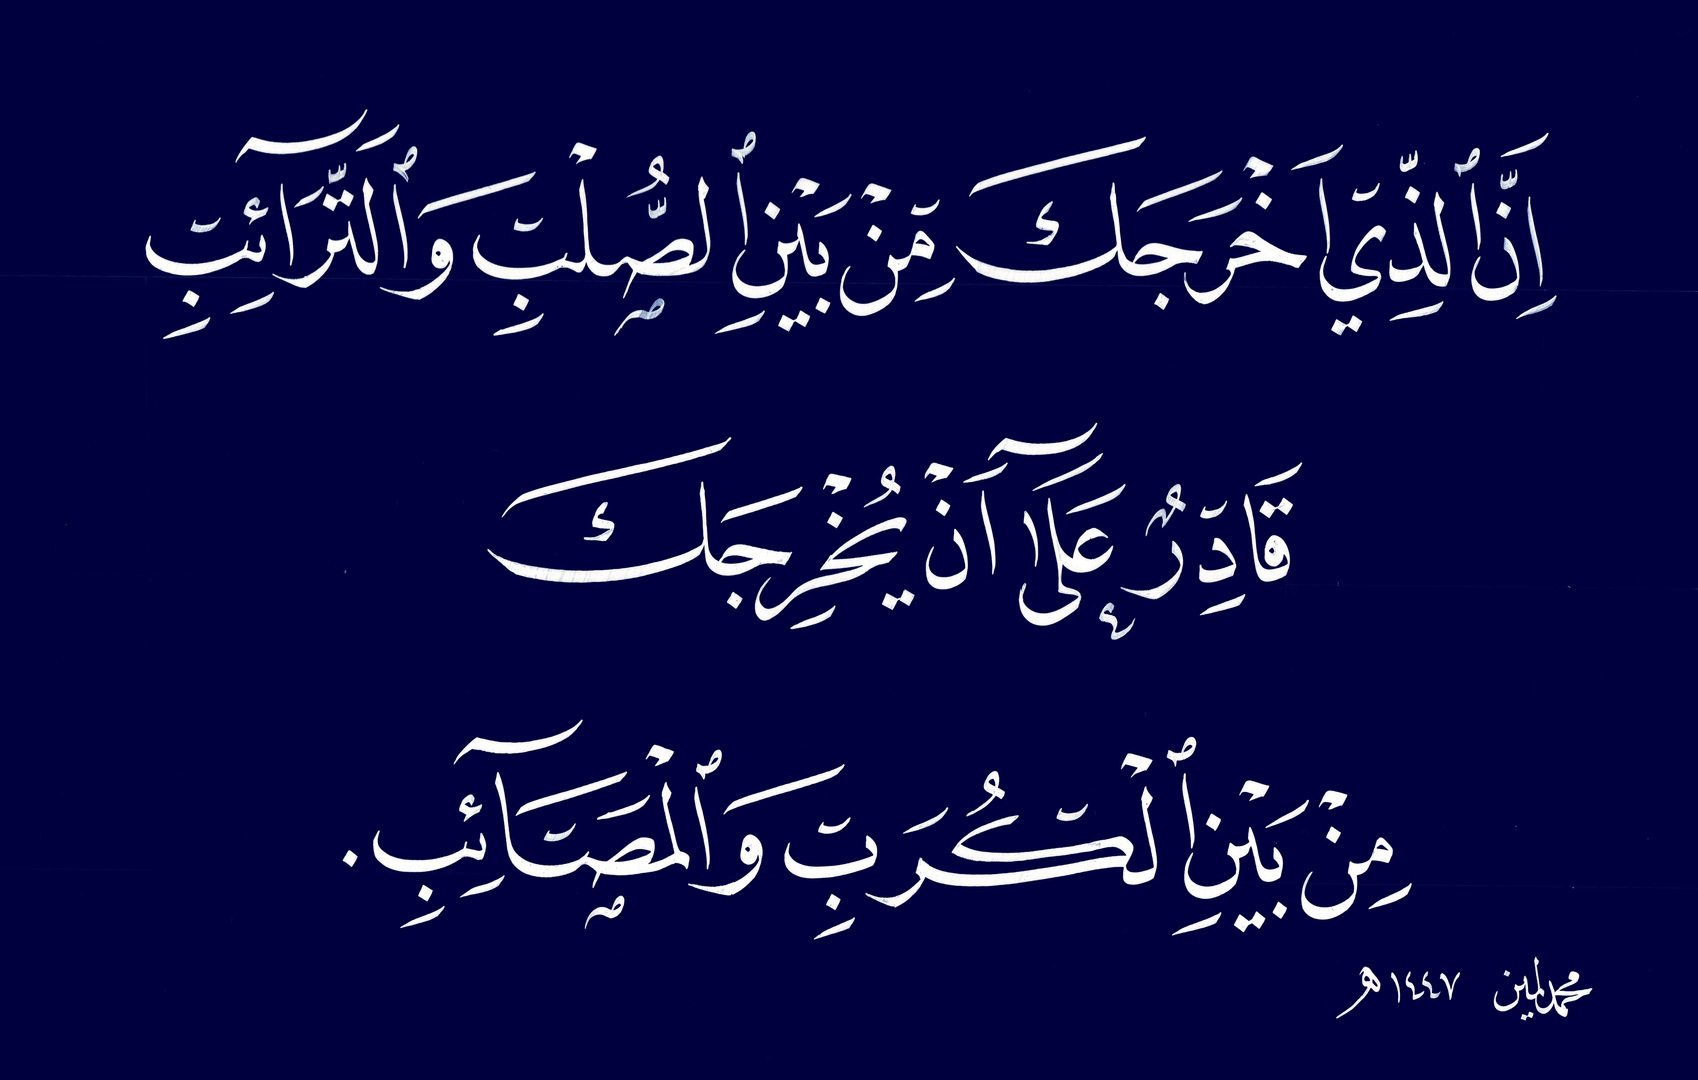 اِنَّ ٱلَّذِّي اَخْرَجَكَ مِّنْ بَيْنِ ٱلصُّلْبِ وَٱلتَّرَآئِبِ
قَادِرٌ عَلَىٰٓ اَنْ يُخْرِجَكَ
مِنْ بَيْنِ ٱلْكُرَبِ وَٱلْمَصَآئِبِ.
محمد لمين ١٤٤٧ هـ